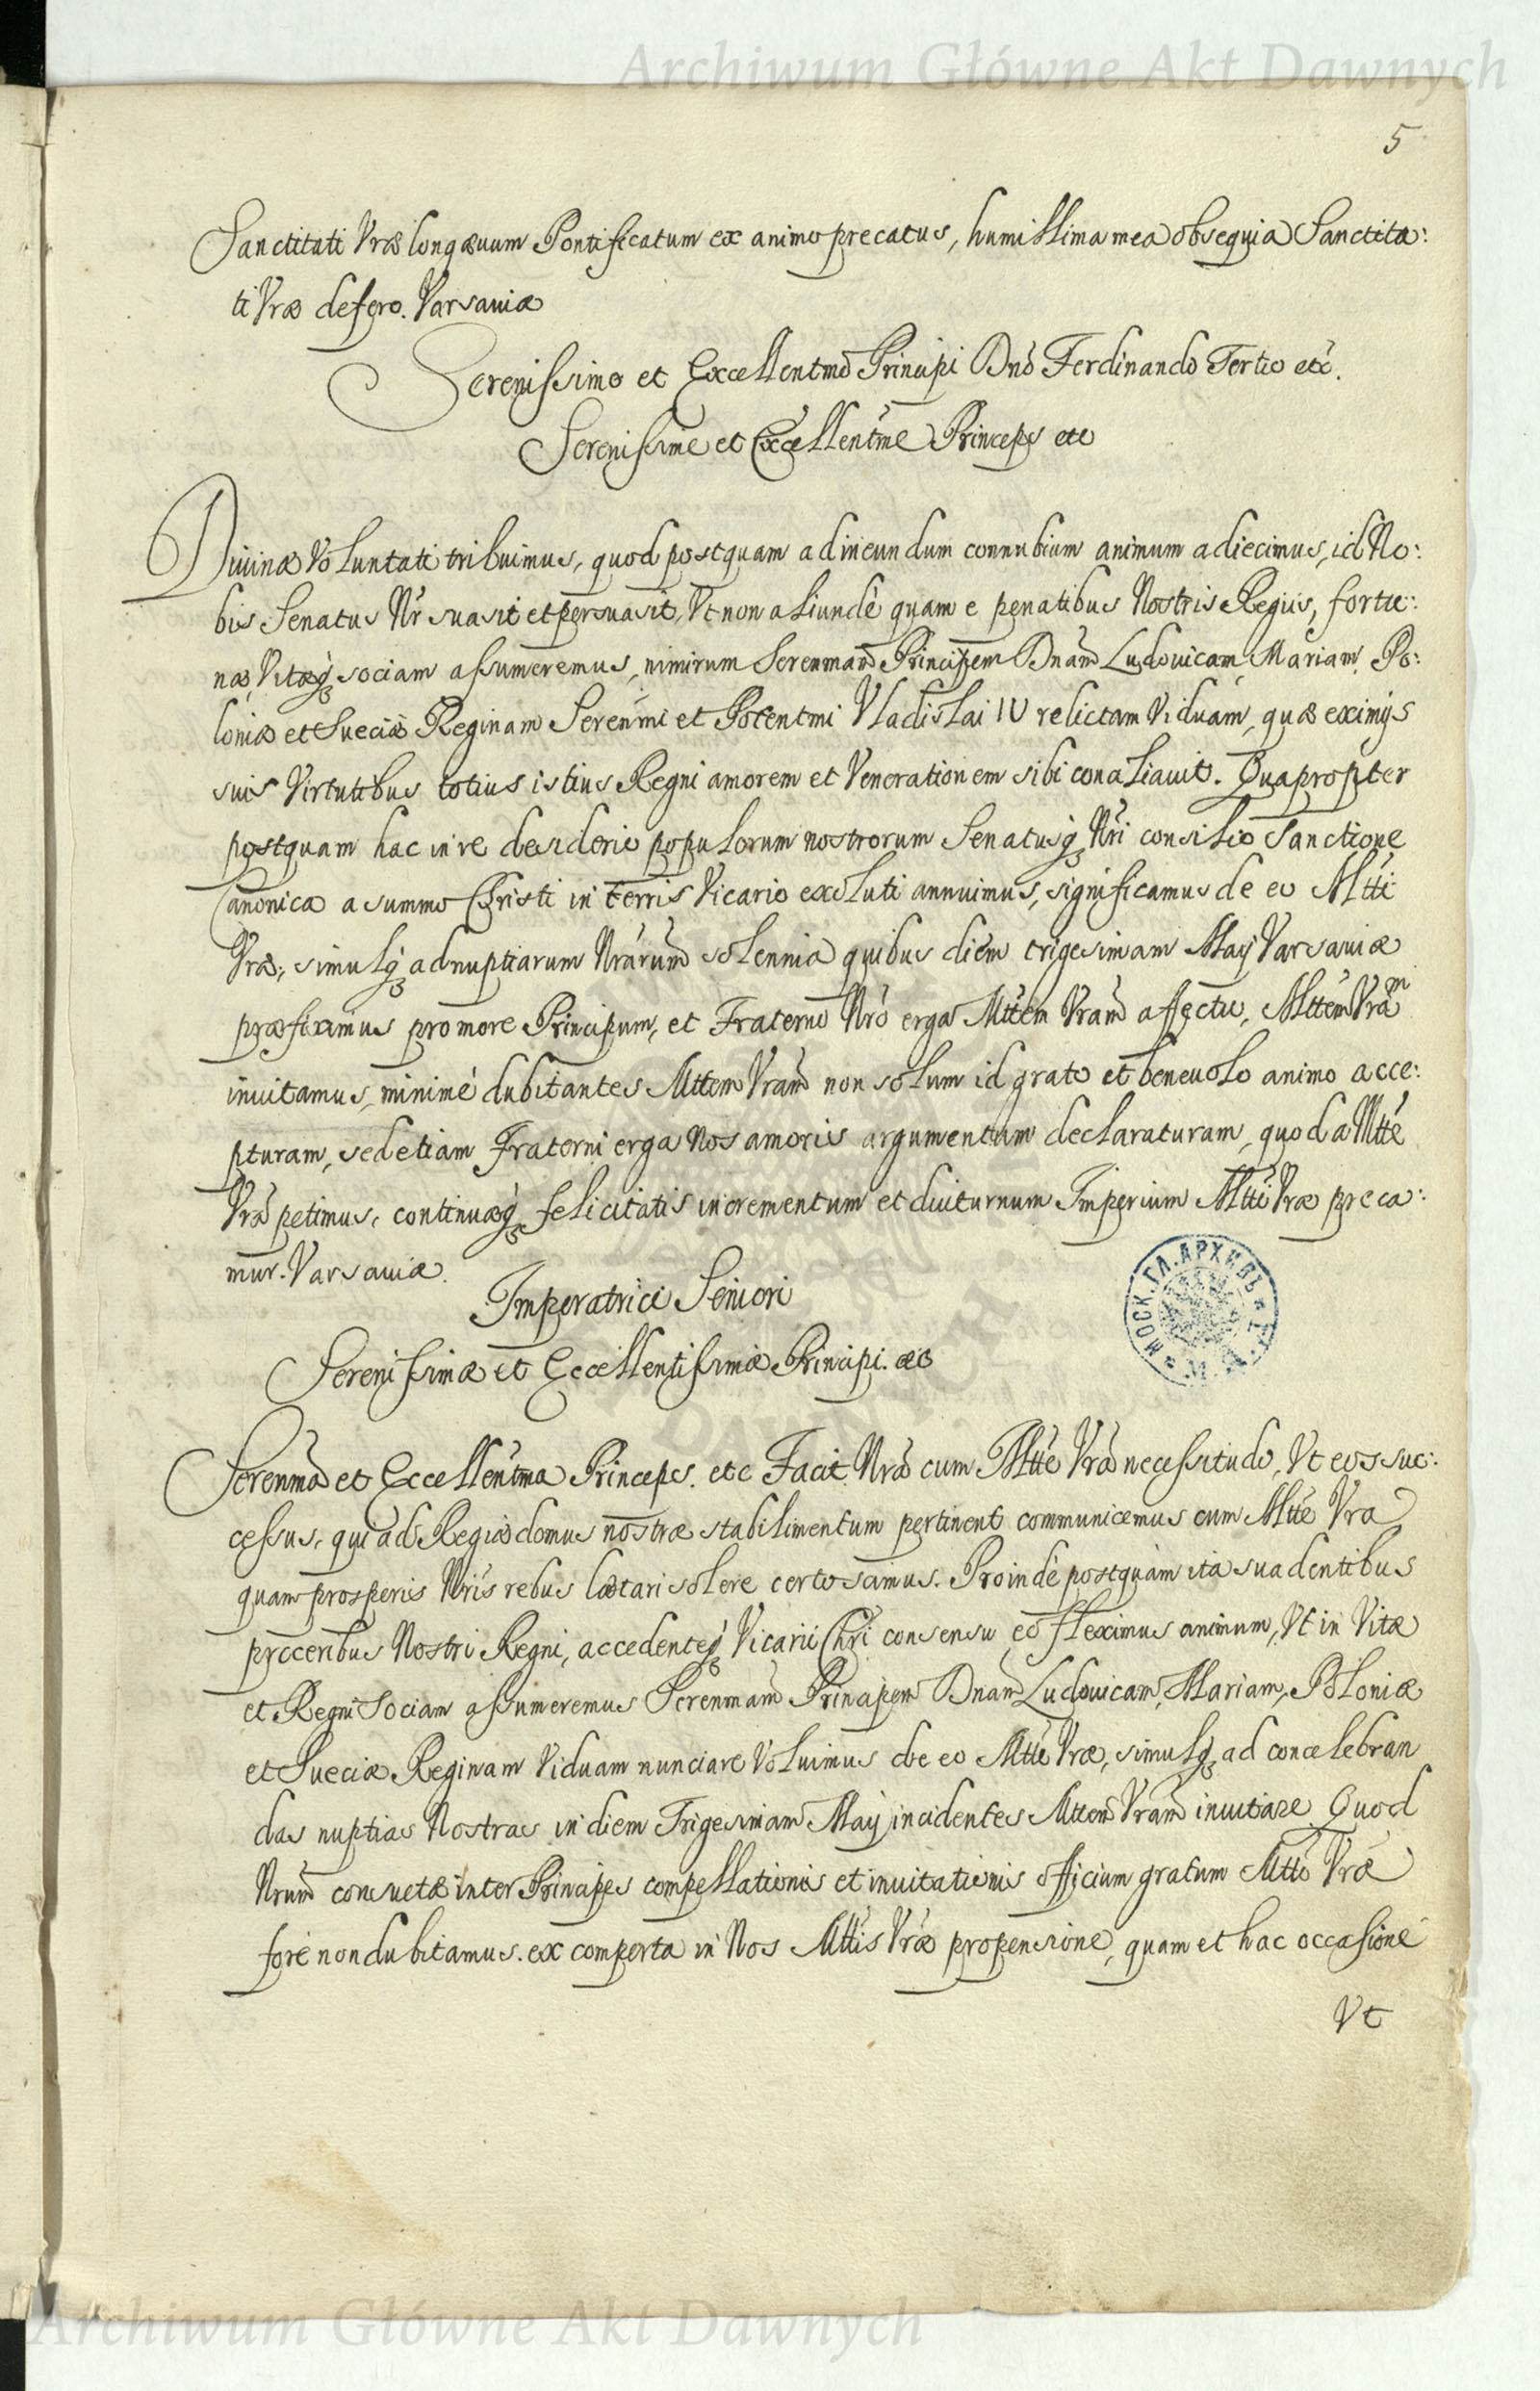 Archiwum Główne Akt Dawnych
5
Sanctitati Vræ longæuum Pontificatum ex animo precatus, humillima mea obsequia Sanctita:
ti Vræ defero. Varsauiæ
Serenissimo et Excellentmo Principi Dnō Ferdinando Tertio etc.
Serenissime et Excellentme Princeps etc
Diuinæ Voluntati tribuimus, quod postquam ad ineundum connubium animum adiecimus, id No:
bis Senatus Nr suasit et persuasit, Vt non aliundè quam e penatibus Nostris Regiis, fortu:
næ, Vitæq sociam assumeremus, nimirum Serenmam Principem Dnam Ludouicam Mariam, Po:
loniæ et Sueciæ Reginam Serenmi et Potentmi Vladislai IV relictam Viduam, quæ eximijs
suis Virtutibus totius istius Regni amorem et Venerationem sibi conciliauit. Quapropter
postquam hac in re desiderio populorum nostrorum Senatusq Nri consilio Sanctione
Canonica a summo Christi in terris Vicario exoluti annuimus, significamus de eo Mtti
Vræ, simulq ad nuptiarum Nrarum solennia quibus diem trigesimam Maij Varsauiæ
præfiximus pro more Principum, et Fraterno Nro erga Mttem Vram affectu, Mttem Vram
inuitamus, minimé dubitantes Mttem Vram non solum id grato et beneuolo animo acce:
pturam, sed etiam Fraterni erga Nos amoris argumentum declaraturam, quod a Mtte
Vra petimus, continuæq felicitatis incrementum et diuturnum Imperium Mtti Vræ preca:
mur. Varsauiæ.
Imperatrici Seniori
МОСК. ГЛ. АРХИВЪ
Serenissimæ et Excellentissimæ Principi. etc
Serenma et Excellentma Princeps. etc Facit Nra cum Mtte Vra necessitudo, Vt eos suc:
cessus, qui ad Regiæ domus nostræ stabilimentum pertinent communicemus cum Mtte Vra
quam prosperis Nris rebus lætari solere certo scimus. Proindè postquam ita suadentibus
proceribus Nostri Regni, accedenteq Vicarii Chri consensu eo fleximus animum, Vt in Vitæ
et Regni Sociam assumeremus Serenmam Principem Dnam Ludouicam Mariam, Poloniæ
et Sueciæ Reginam Viduam nunciare Voluimus de eo Mtti Vræ, simulq ad concelebran
das nuptias Nostras in diem Trigesimam Maij incidentes Mttem Vram inuitare Quod
Nrum consuetæ inter Principes compellationis et inuitationis officium gratum Mtti Vræ
foré non dubitamus. ex comperta in Nos Mttis Vræ propensione, quam et hac occasione
Vt
Archiwum Główne Akt Dawnych